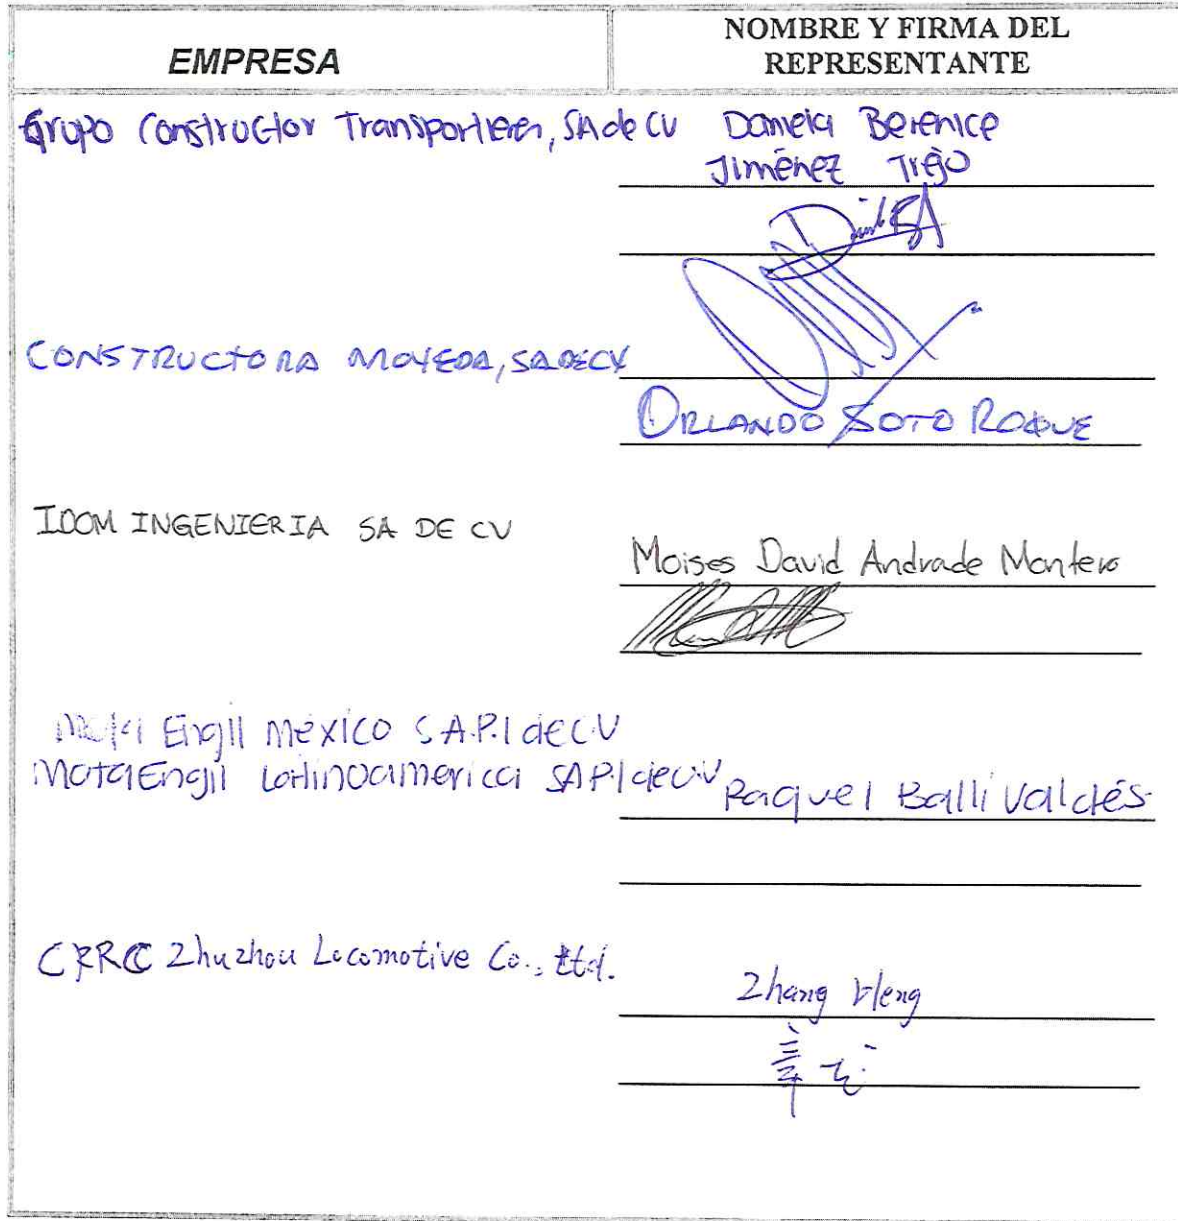 EMPRESA
NOMBRE Y FIRMA DEL
REPRESENTANTE
Grupo Constructor SA de CV Daniela Berenice
Jiménez Trejo
CONSTRUCTORA MOYEDA, SA DE CV
ORLANDO SOTO ROQUE
IDOM INGENIERIA SA DE CV
Moises David Andrade Montero
Mota Engil México S.A.P.I de C.V
Mota Engil Latinoamerica SAPI de C.V
Raquel Balli Valdés
CRRC Zhuzhou Locomotive Co., Ltd.
Zhang
章